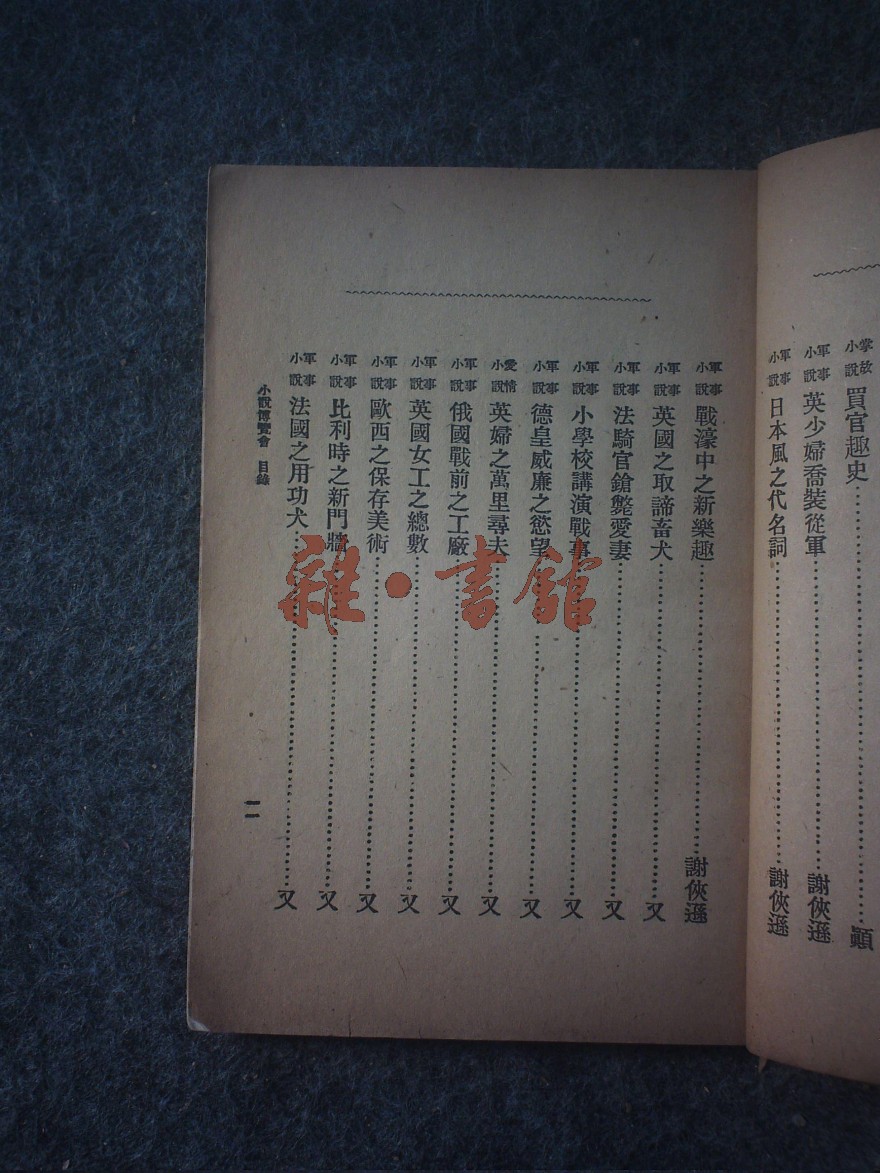 掌故小說 買官趣史……顚
軍事小說 英少婦喬裝從軍……謝俠遜
軍事小說 日本風之代名詞……謝俠遜
軍事小說 戰濠中之新樂趣……謝俠遜
軍事小說 英國之取諦畜犬……又
軍事小說 法騎官鎗斃愛妻……又
軍事小說 小學校講演戰事……又
軍事小說 德皇威廉之慾望……又
愛情小說 英婦之萬里尋夫……又
軍事小說 俄國戰前之工廠……又
軍事小說 英國女工之總數……又
軍事小說 歐西之保存美術……又
軍事小說 比利時之新門牆……又
軍事小說 法國之用功犬……又
小說博覽會 目錄
一一
雜·書館